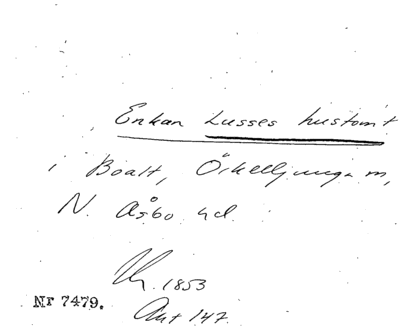 Enkan Lusses hustomt
i Boalt, Örkelljunga sn,
N. Åsbo hd
1853
Nr 7479.
Ant 147